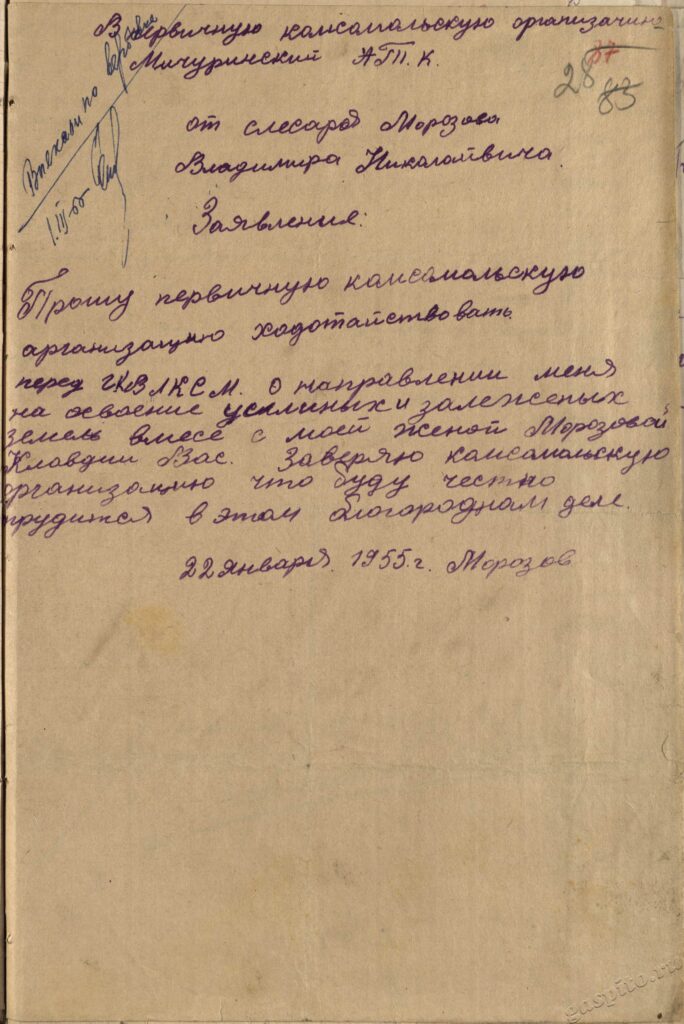 В первичную камсамальскую организачию
Мичуринский АТ.К.
28
37
83
от слесаря Морозова
Владимира Никалаевича.
Заявления.
Выехали по вербовке
1.III-55
Прошу первичную камсамальскую
арганизацию ходотайствовать
перед ЦКВЛКСМ. о направлении меня
на освоение уелиных и залеженых
земель вмесе с моей женой Морозовай
Клавдии Вас. Заверяю камсамальскую
организацию что буду честно
трудится в этам благороднам деле.
22 января. 1955.г. Морозов
gaspito.ru